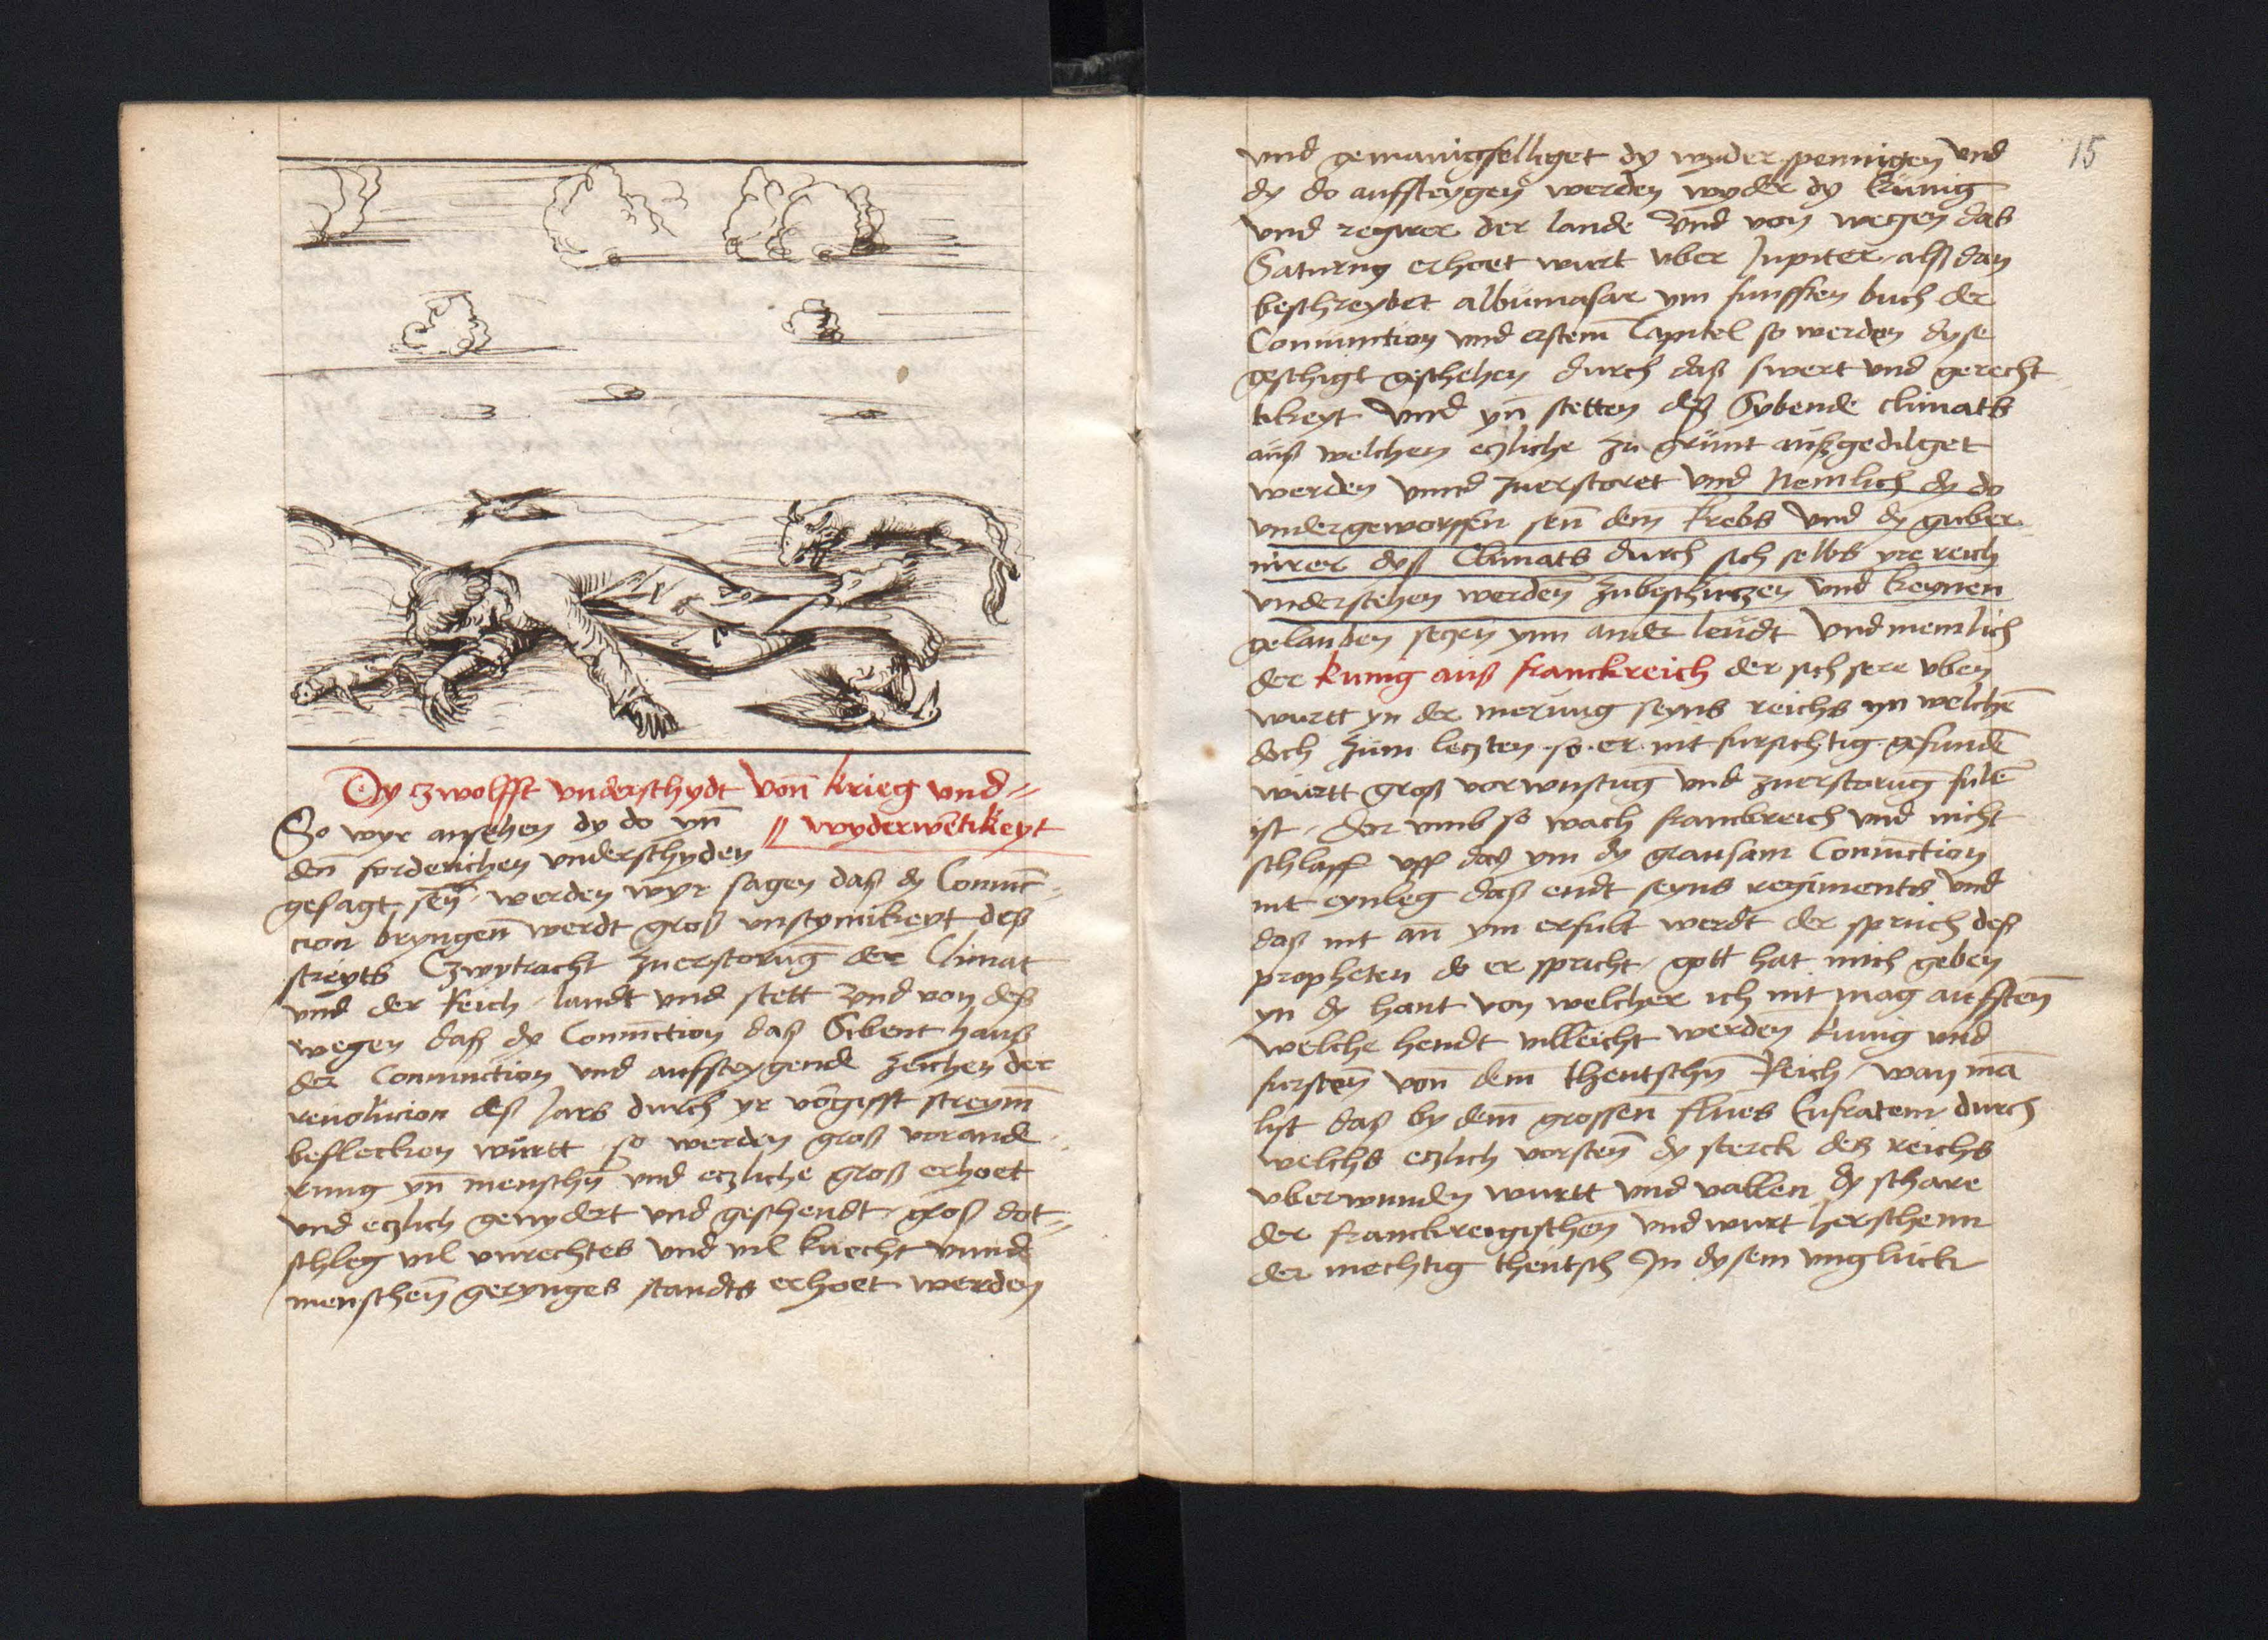 Dy zwolfft underschydt von krieg und
wyderwetikeyt
So wyr ansehen dy do yn
den forderichen underschyden
gesagt sen werden wyr sagen daß dy Coniunc-
cion bryngen werdt groß unstymikeyt deß
streyts Czwytracht zuerstorung der Climat
und der Reich landt und stett Und von deß
wegen daß dy Coniunction daß Sibent hauß
der Coniunction und auffsteygende zeichen der
revolucion deß Jars durch yr vorgifft streym
beflecken wurtt so werden groß vorande
rung yn menschn und etzliche groß erhoet
und etzlich genydert und geschendt groß dot-
schleg vil unrechtes und vil knecht unnd
menschen gerynges standts erhoet werden
15
und gemanigfelliget dy wyderspennigen und
dy do auffsteygen werden wyder dy kunig
und regirer der lande Und von wegen das
Saturny erhoet wurt uber Jupiter alß dan
beschreybet albumasar ym funfften buch der
Coniunction und erstem Capitel so werden dyse
geschigt geschehen durch daß swert und gerecht
tikeyt Und yn stetten deß Sybende climats
auß welchen etzliche zu grunt außgedilget
werden unnd zuerstoret und Nemlich dy do
undergeworffen sen dem krebs und dy guber
nirer dyß Climats durch sich selbs yre reich
understehen werden zubeschutzen und keynen
gelauben setzen ynn ander leudt Und nemlich
der kunig auß franckreich der sich sere uben
wurtt yn der merung seyns reichs yn welchen
doch zum letzten so er nit fursichtig gefunden
wurtt groß vorwustug und zuerstorug fulen
ist Dor umb so wach franckreich und nicht
schlaff uff daß ym dy grausam Coniunction
nit eynleg daß endt seyns regiments und
daß nit an ym erfult werdt der spruch deß
propheten do er spricht gott hat mich geben
yn dy hant von welcher ich nit mag auffsten
welche hendt villeicht werden kunig und
fursten von dem theutschn Reich wan ma
list daß by dem grossen flues Eufraten durch
welchs etzlich vorsten dy sterck deß reichs
uberwunden wurtt und vallen dy schare
der franckreigischen und wurt herschenn
der mechtig theutsch In dysem ungluck